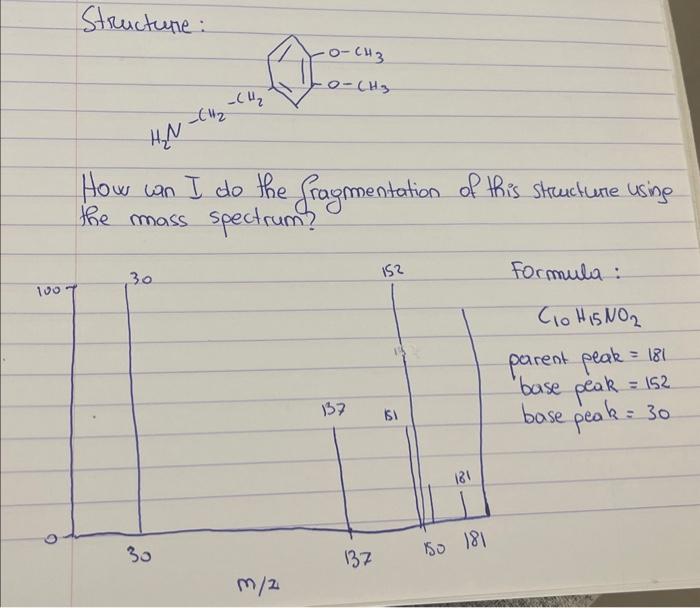 Structure:
O-CH3
O-CH3
-CH2
-CH2
H2N
How can I do the fragmentation of this structure using
the mass spectrum?
Formula:
C10H15NO2
parent peak = 181
base peak = 152
base peak = 30
100
30
152
137
151
181
0
30
137
150
181
m/z